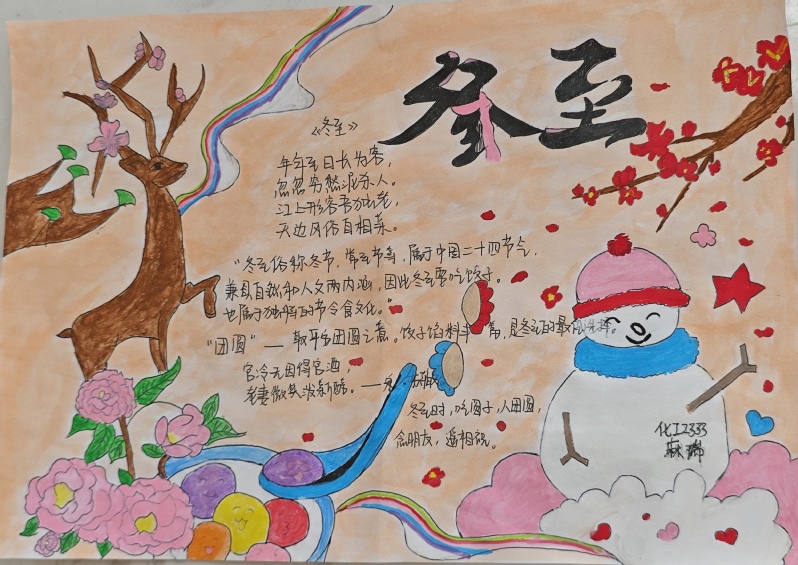 冬至
《冬至》
年年至日长为客，
忽忽穷愁泥杀人。
江上形容吾独老，
天边风俗自相亲。
“冬至俗称冬节，属于中国二十四节气，
兼具自然和人文两内涵，因此冬至要吃饺子。
也属于独特的节令食文化。”
“团圆”——取平安团圆之意。饺子馅料丰富，是冬至的最
官冷无因得官酒，
老妻微笑泼新醅。——
冬至时，吃圆子，人团圆，
念朋友，遥相祝。
化工2333
麻